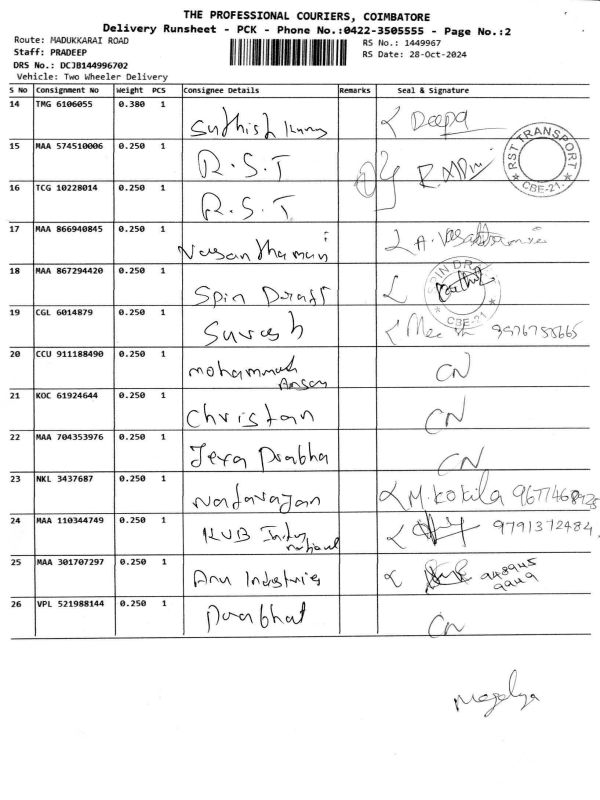 THE PROFESSIONAL COURIERS, COIMBATORE
Delivery Runsheet - PCK - Phone No.:0422-3505555 - Page No.:2
Route: MADUKKARAI ROAD RS No.: 1449967
Staff: PRADEEP RS Date: 28-Oct-2024
DRS No.: DCJB144996702
Vehicle: Two Wheeler Delivery
S No Consignment No Weight PCS Consignee Details Remarks Seal & Signature
14 TMG 6106055 0.380 1 Deepa
15 MAA 574510006 0.250 1 R.S.T
RST TRANSPORT CBE-21.
16 TCG 10228014 0.250 1 R.S.T.
17 MAA 866940845 0.250 1 Vasanthamani
18 MAA 867294420 0.250 1 Spin Draft
SPIN DRAFT CBE-21
19 CGL 6014879 0.250 1 Suresh
20 CCU 911188490 0.250 1 mohammad CN
Ansary
21 KOC 61924644 0.250 1 Christan CN
22 MAA 704353976 0.250 1 Jeya Prabha CN
23 NKL 3437687 0.250 1 Natarajan M. Kokila
24 MAA 110344749 0.250 1 KVB 9791372484
national
25 MAA 301707297 0.250 1 Anu Industries 948945
9949
26 VPL 521988144 0.250 1 CN